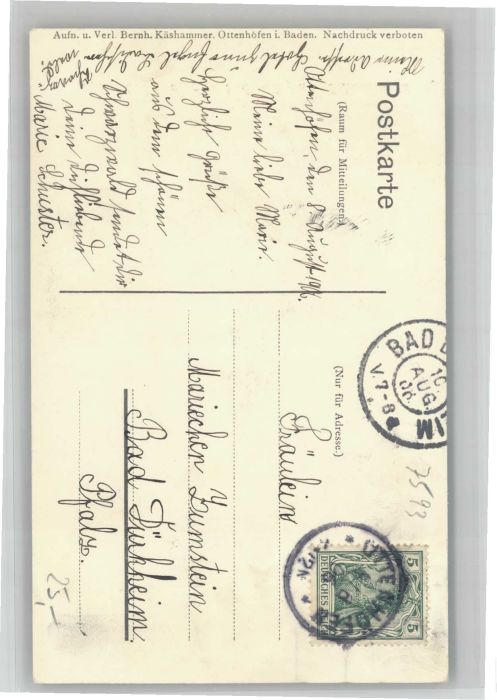 Aufn. u. Verl. Bernh. Käshammer, Ottenhöfen i. Baden. Nachdruck verboten
Meine Adresse: Hotel zum Engel
Postkarte
(Raum für Mitteilungen.)
Ottenhöfen, den 8. August 1906.
Meine liebe Marie.
Herzliche Grüße
aus dem schönen
Schwarzwald sendet dir
deine dichliebende
Marie Schuster.
(Nur für Adresse.)
Fräulein
Mariechen Zumstein
Bad Dürkheim.
Pfalz.
BAD
EIM
10
AUG.
06.
V. 7-8
7593
25,-
5
5
DEUTSCHES REICH